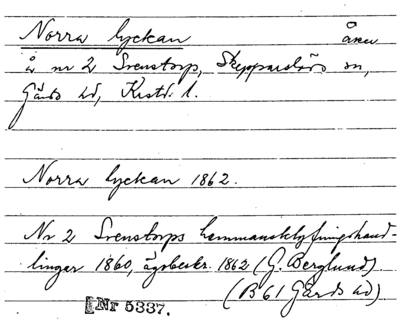 Norra lyckan åker
å nr 2 Svenstorp, Skepparslövs sn,
Gärds hd, Krstd. l.
Norra lyckan 1862.
Nr 2 Svenstorps hemmansklyfningshand-
lingar 1860, ägobeskr. 1862 (G. Berglund)
(B 61 Gärds hd)
Nr 5337.